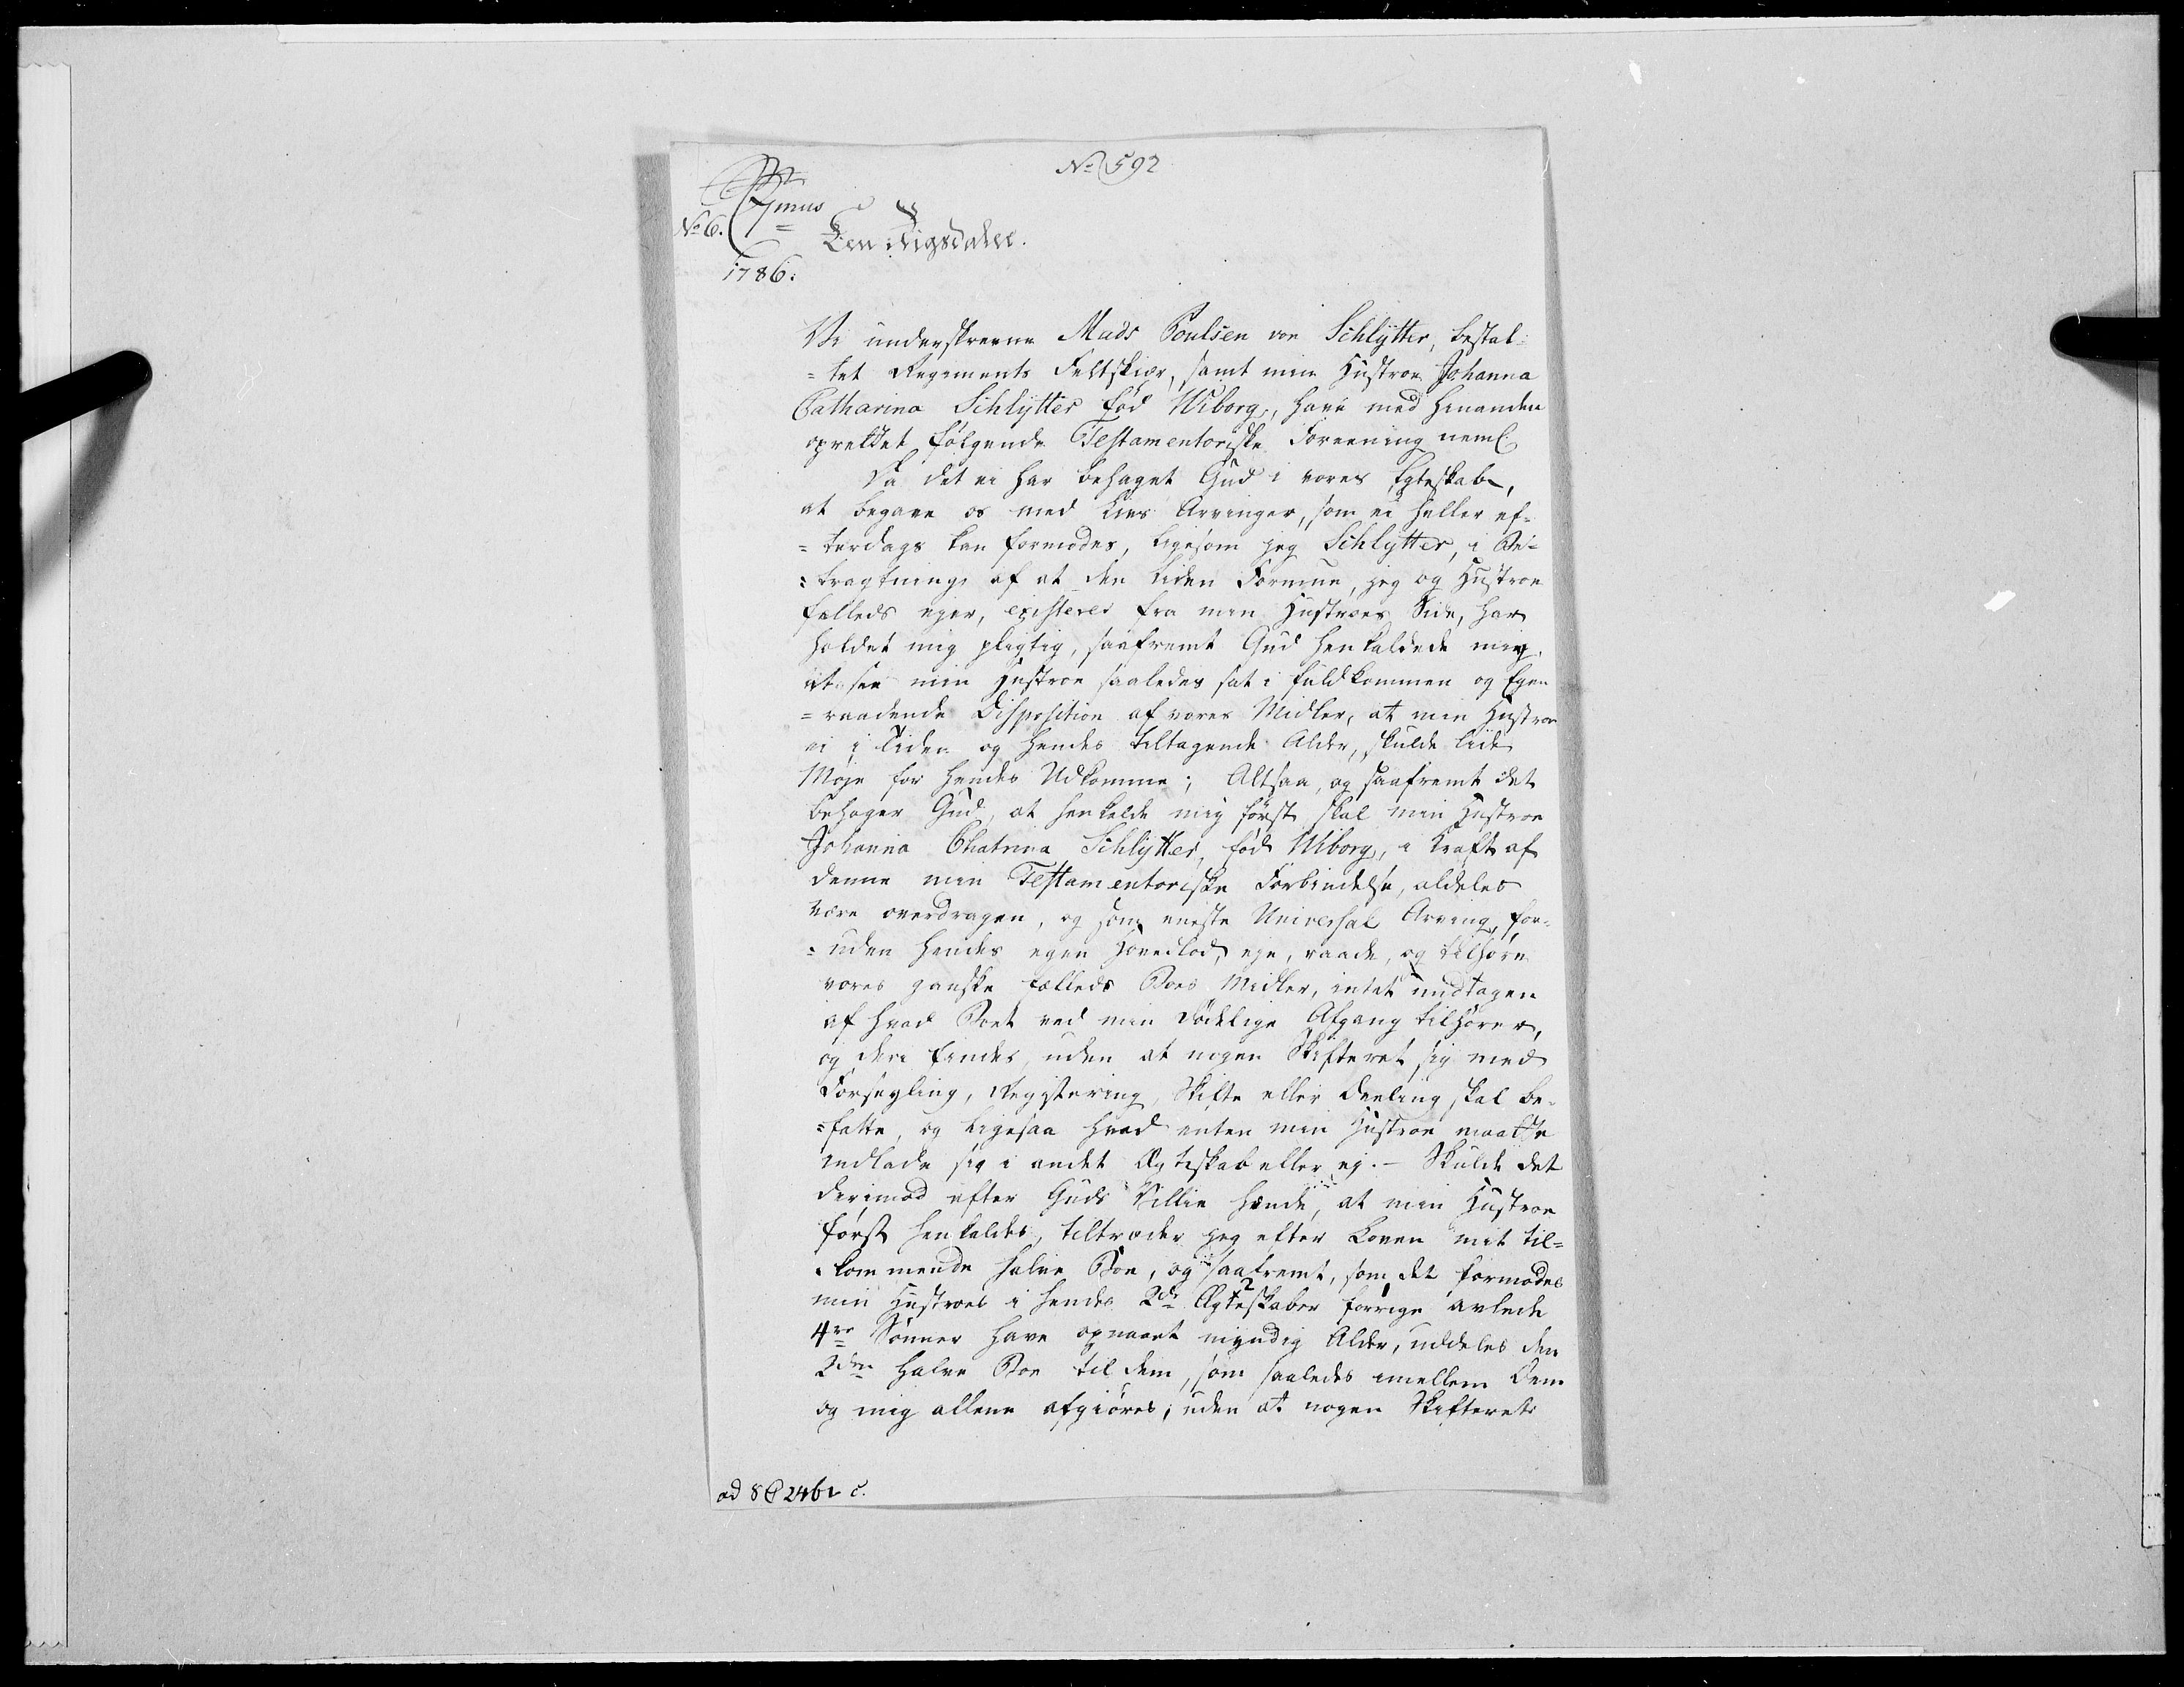 No 592
No 6. 7mus
Een Rigsdaler.
1786.
Vi underskrevne Mads Poulsen von Schlytter, bestal-
=let Regiments Feltskier, samt min Hustroe Johanna
Catharina Schlytter fød Wiborg, have med hinanden
oprettet følgende Testamentoriske Foreening neml:
Da det ei har behaget Gud i vores Egteskab,
at begave os med Livs Arvinger, som ei heller ef-
=terdags kan formodes, ligesom jeg Schlytter, i Be-
=tragtning af at den liden Formue, jeg og Hustroe
felleds ejer, existerer fra min Hustroes Side, har
holdet mig pligtig, saafremt Gud henkaldede mig,
at see min Hustroe saaledes sat i fuldkommen og Egen
=raadende Disposition af vores Midler, at min Hustroe
ei i Tiden og hendes tiltagende Alder, skulde lide
Møje for hendes Udkomme; Altsaa, og saafremt det
behager Gud, at henkalde mig først skal min Hustroe
Johanna Chatrina Schlytter, fød Wiborg, i Kraft af
denne min Testamentoriske Forbindelse, aldeles
være overdragen, og som eneste Universal Arving, for-
=uden hendes egen Hovedlod, eye, raade, og tilhøre
vores ganske fælleds Boes Midler, intet undtagen
af hvad Boet ved min Dødelige Afgang tilhører,
og deri findes, uden at nogen Skifteret sig med
Forseyling, Registering, Skifte eller Deeling skal be-
=fatte, og ligesaa hvad enten min Hustroe maatte
indlade sig i andet Ægteskab eller ej. - Skulde det
derimod efter Guds Villie hænde, at min Hustroe
først henkaldes, tiltræder jeg efter Loven mit til-
=kommende halve Boe, og saafremt, som det formodes
min Hustroes i hendes 2de Ægteskaber forrige avlede
4re Sønner have opnaaet myndig Alder, uddeles den
2den halve Boe til dem, som saaledes imellem Dem
og mig allene afgiøres, uden at nogen Skifterets
ad 8 2461 c.